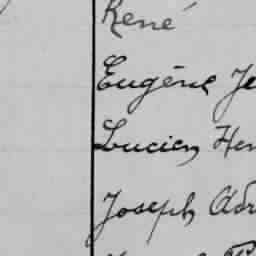 René
Eugéne Je
Lucien Hen
Joseph Adr